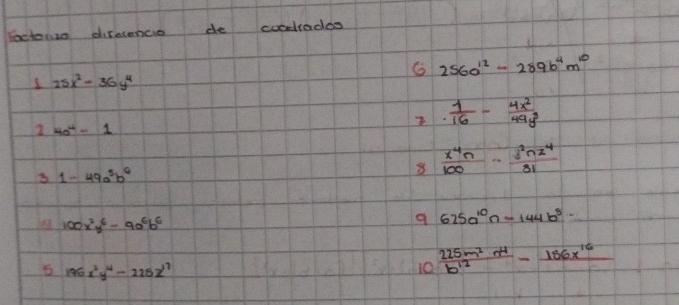 Factoriza diferencia de cuadrados
1 25x² - 36y⁴
2 4a⁴ - 1
3 1 - 49a⁸b⁶
100x²y⁶ - 9a⁶b⁶
5 196x²y⁴ - 225z¹²
6 256a¹² - 289b⁴m¹⁰
7 1/16 - 4x²/49y⁸
8 x⁴n/100 - nz⁴/81
9 625a¹⁰n - 144b⁸
10 225m² n⁴/b¹² - 166x¹⁶